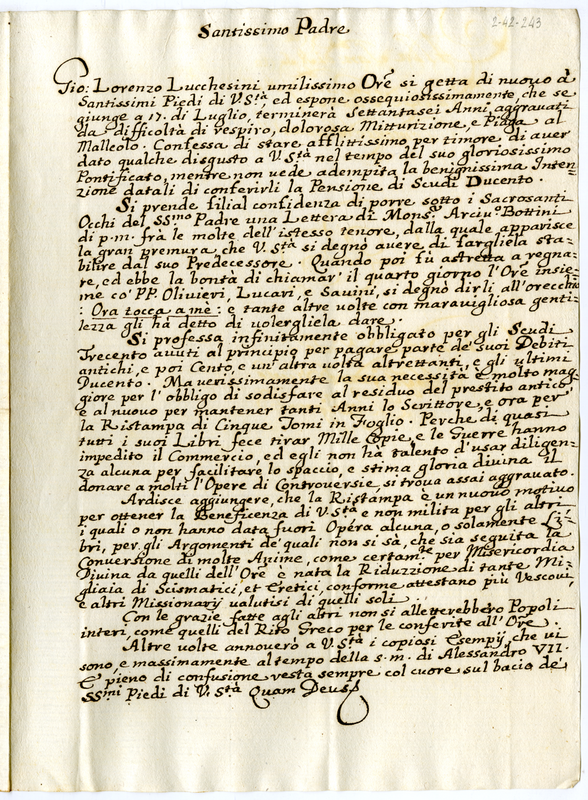 2-42-243
Santissimo Padre
Gio: Lorenzo Lucchesini umilissimo Ore si getta di nuovo à
Santissimi Piedi di V. Stà, ed espone ossequiosissimamente, che se
giunge a 17. di Luglio, terminerà Settantasei Anni, aggravati
da difficoltà di respiro, dolorosa Mitturizione, e Piaga al
Malleolo. Confessa di stare afflittissimo, per timore di aver
dato qualche disgusto a V. Stà nel tempo del suo gloriosissimo
Pontificato, mentre non vede adempita la benignissima Inten=
zione datali di conferirli la Pensione di Scudi Ducento.
Si prende filial confidenza di porre sotto i Sacrosanti
Occhi del SSmo Padre una Lettera di Monsr. Arciuo Bottini
di p.m. frà le molte dell'istesso tenore, dalla quale apparisce
la gran premura, che V. Stà si degnò avere di fargliela sta=
bilire dal suo Predecessore. Quando poi fù astretta a regna=
re, ed ebbe la bontà di chiamar' il quarto giorno l'Ore insie=
me co' PP. Olivieri, Lucari, e Savini, si degnò dirli all'orecchio
: Ora tocca a me: e tante altre volte con maravigliosa genti=
lezza gli hà detto di volergliela dare.
Si professa infinitamente obbligato per gli Scudi
Trecento avuti al principio per pagare parte de' suoi Debiti
antichi, e poi Cento, e un'altra volta altrettanti, e gli ultimi
Ducento. Ma verissimamente la sua necessità è molto mag=
giore per l'obbligo di sodisfare al residuo del prestito antico,
e al nuovo per mantener tanti Anni lo Scrittore, e ora per
la Ristampa di Cinque Tomi in Foglio. Perche di quasi
tutti i suoi Libri fece tirar Mille Copie, e le Guerre hanno
impedito il Commercio, ed egli non hà talento d'usar diligen=
za alcuna per facilitare lo spaccio, e stima gloria divina il
donare a molti l'Opere di Controversie, si trova assai aggravato.
Ardisce aggiungere, che la Ristampa è un nuovo motivo
per ottener la Beneficenza di V. Stà e non milita per gli altri
i quali o non hanno data fuori Opera alcuna, o solamente Li=
bri, per gli Argomenti de' quali non si sà, che sia seguita la
Conversione di molte Anime, come certamte per Misericordia
Divina da quelli dell'Ore è nata la Riduzzione di tante Mi=
gliaia di Scismatici, et Eretici, conforme attestano più Vescovi,
e altri Missionarÿ valutisi di quelli soli.
Con le grazie fatte agli altri non si alletterebbero Popoli
interi, come quelli del Rito Greco per le conferite all'Ore.
Altre volte annoverò a V. Stà i copiosi Esempÿ, che vi
sono, e massimamente al tempo della s.m. di Alessandro VII.
E' pieno di confusione resta sempre col cuore sul bacio de'
SSmi Piedi di V. Stà Quam Deus